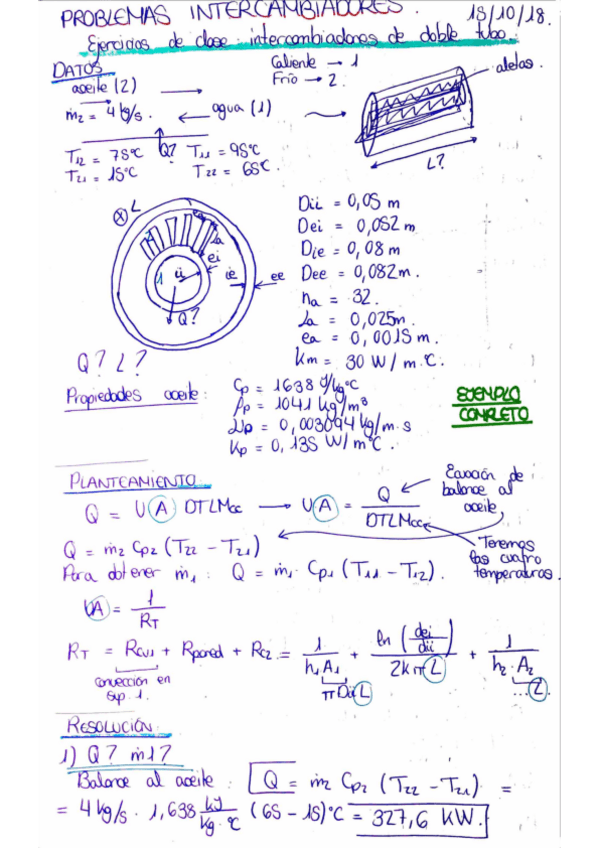 PROBLEMAS INTERCAMBIADORES. 18/10/18.
Ejercicios de clase: intercambiadores de doble tubo.
DATOS
Caliente → 1
Frío → 2
aletas.
aceite (2) →
ṁ2 = 4 kg/s. ← agua (1)
T12 = 75ºC Q? T11 = 95ºC
T21 = 15ºC T22 = 65ºC
L?
L
La
ei
ii
ie
ee
1
Q?
Q? L?
Dii = 0,05 m
Dei = 0,052 m
Die = 0,08 m
Dee = 0,082 m.
na = 32.
La = 0,025m.
ea = 0,0015 m.
km = 30 W/m.ºC.
Propiedades aceite:
Cp = 1638 J/kgºC
ρp = 1041 kg/m³
μp = 0,003094 kg/m·s
kp = 0,135 W/mºC.
EJEMPLO
COMPLETO
PLANTEAMIENTO
Q = U A DTLMcc → U A = Q / DTLMcc
Ecuación de
balance al
aceite,
Q = ṁ2 Cp2 (T22 - T21)
Teremos
las cuatro
temperaturas.
Para obtener ṁ1: Q = ṁ1 · Cp1 (T11 - T12).
UA = 1 / RT
RT = Rcv1 + Rpared + Rc2 = 1 / h1A1 + ln (dei/dii) / 2kπL + 1 / h2·A2
convección en
sup. 1.
π Dii L
... L
RESOLUCIÓN
1) Q? ṁ1?
Balance al aceite: Q = ṁ2 Cp2 (T22 - T21) =
= 4 kg/s · 1,638 kJ/kg·ºC (65 - 15)ºC = 327,6 KW.